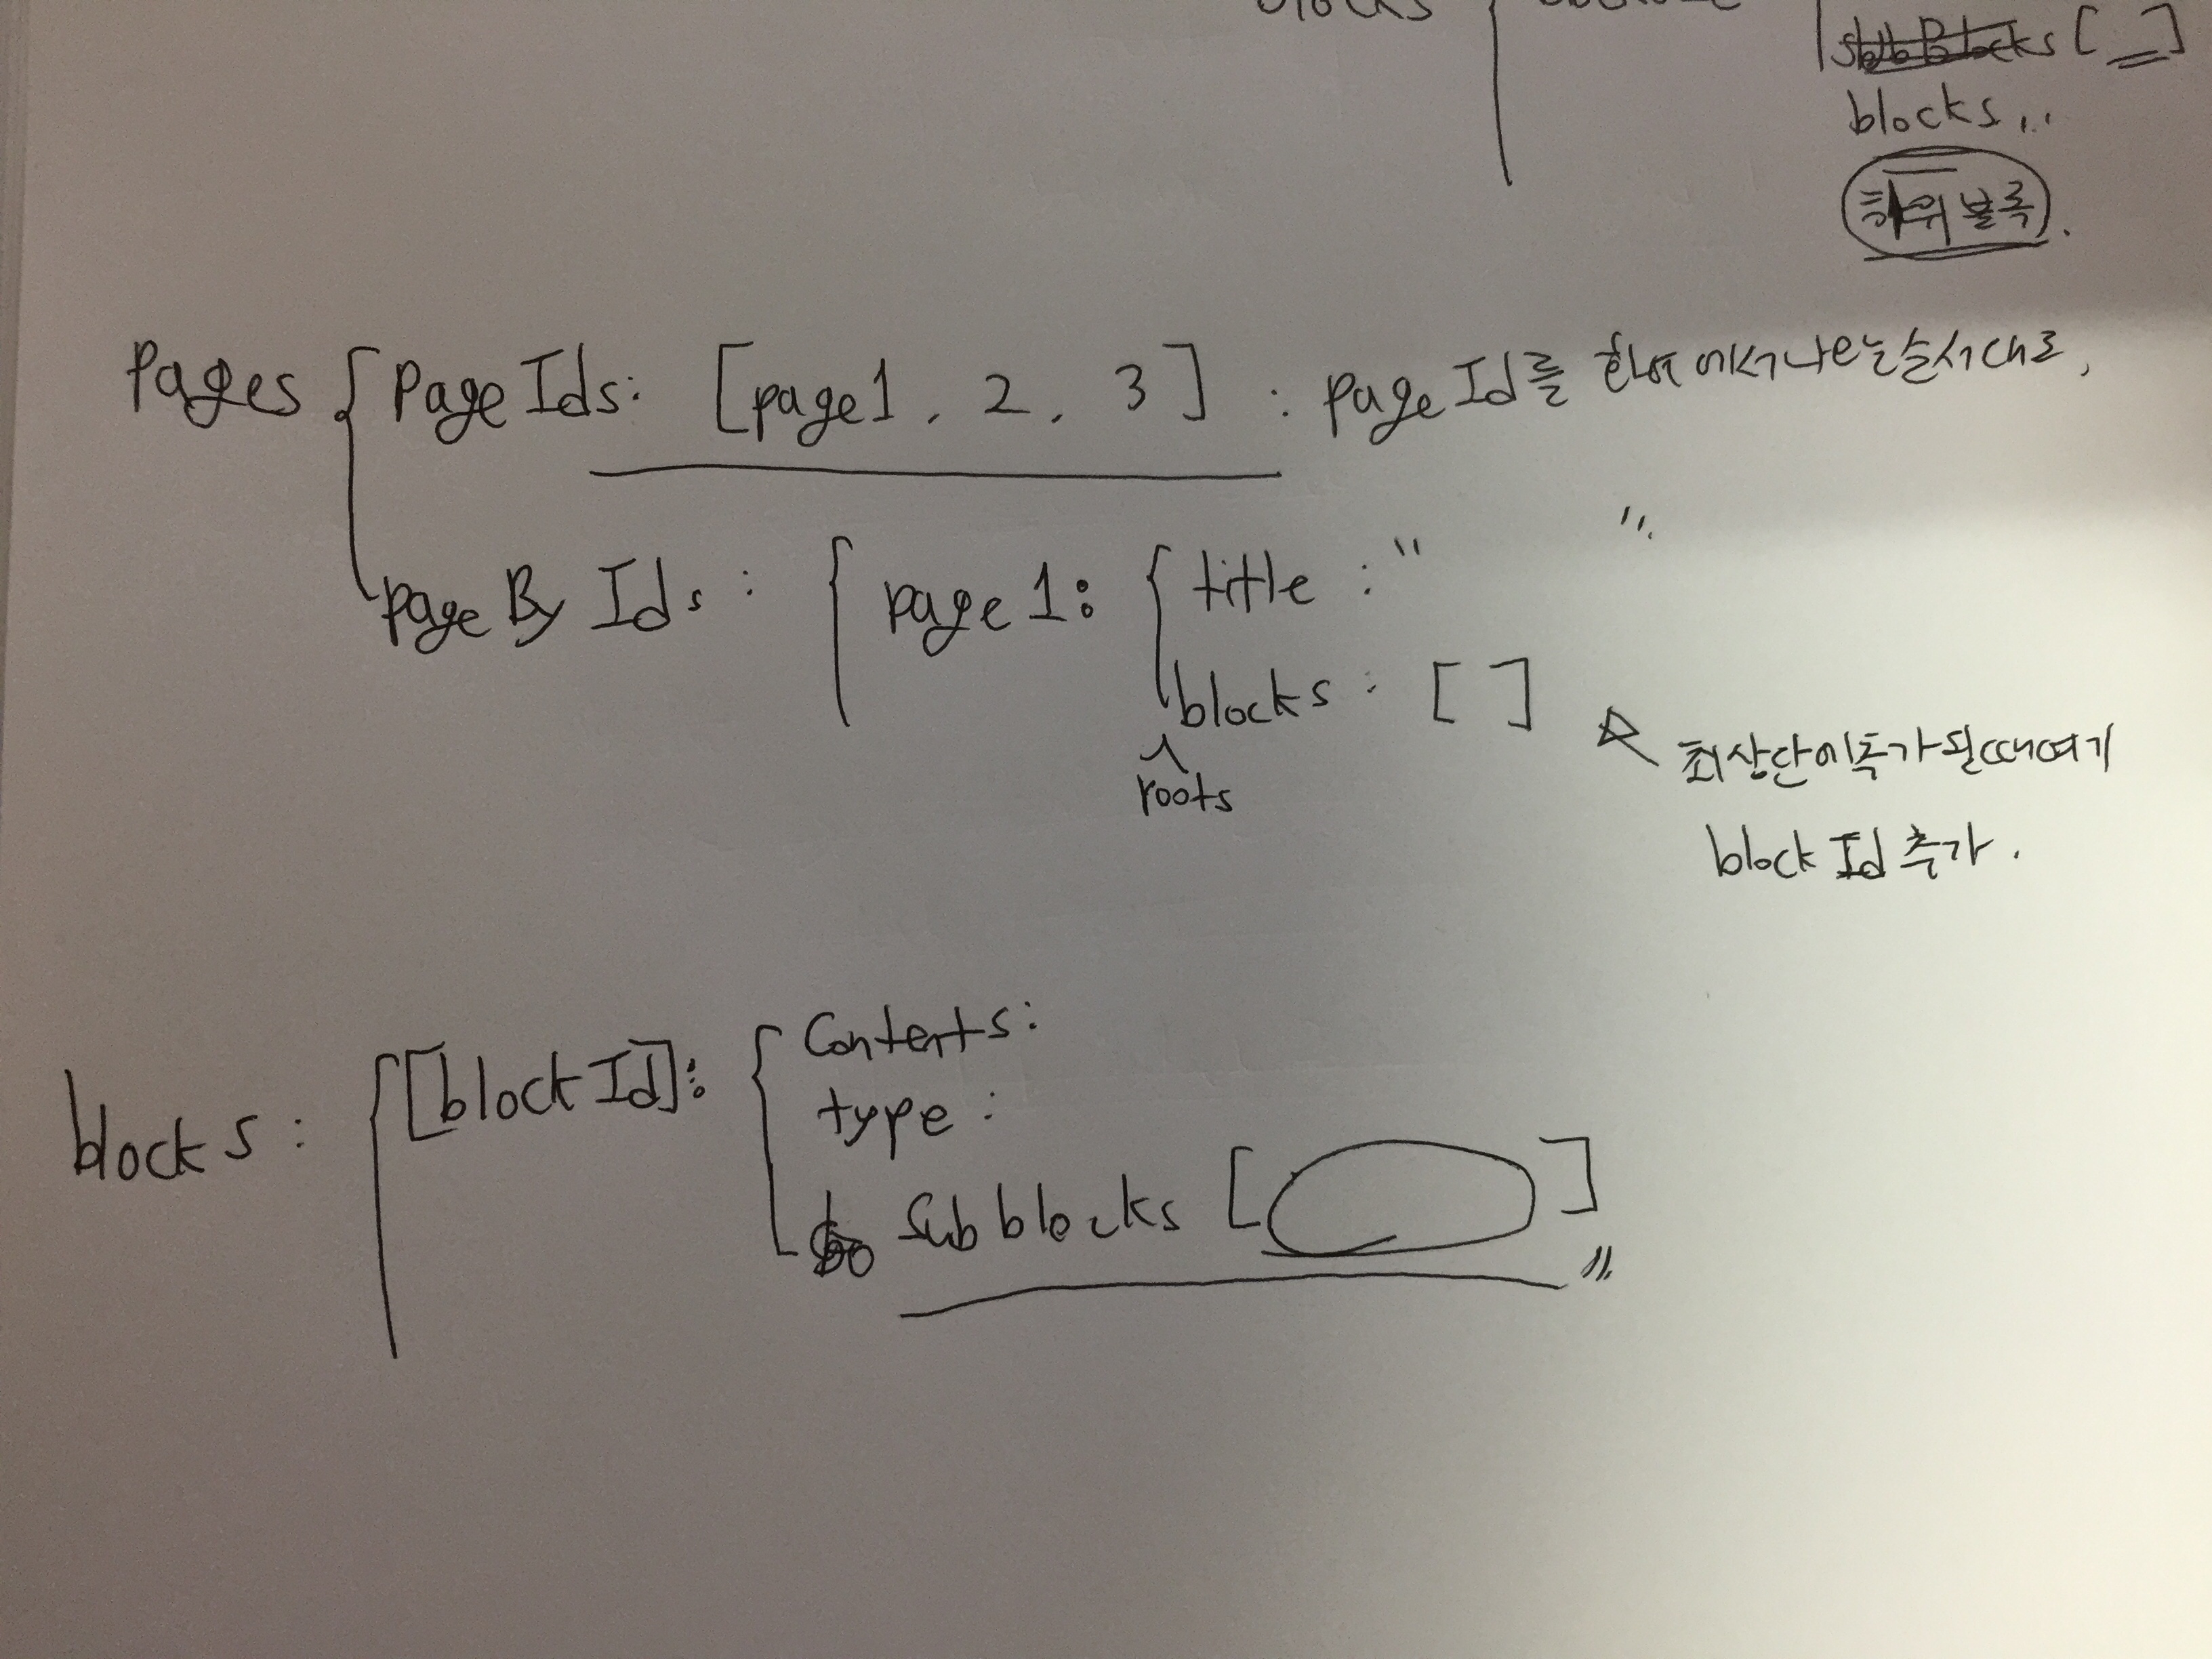 blocks
subBlocks [ ]
blocks...
하위 블록.
Pages { PageIds: [page1, 2, 3] : pageId를 에서 나오는 순서대로,
pageByIds: { page1: { title : " ".
blocks : [ ]
roots
최상단이 추가 될 때 여기
blockId 추가.
blocks : { [blockId]: { Contents:
type :
Subblocks [ ]